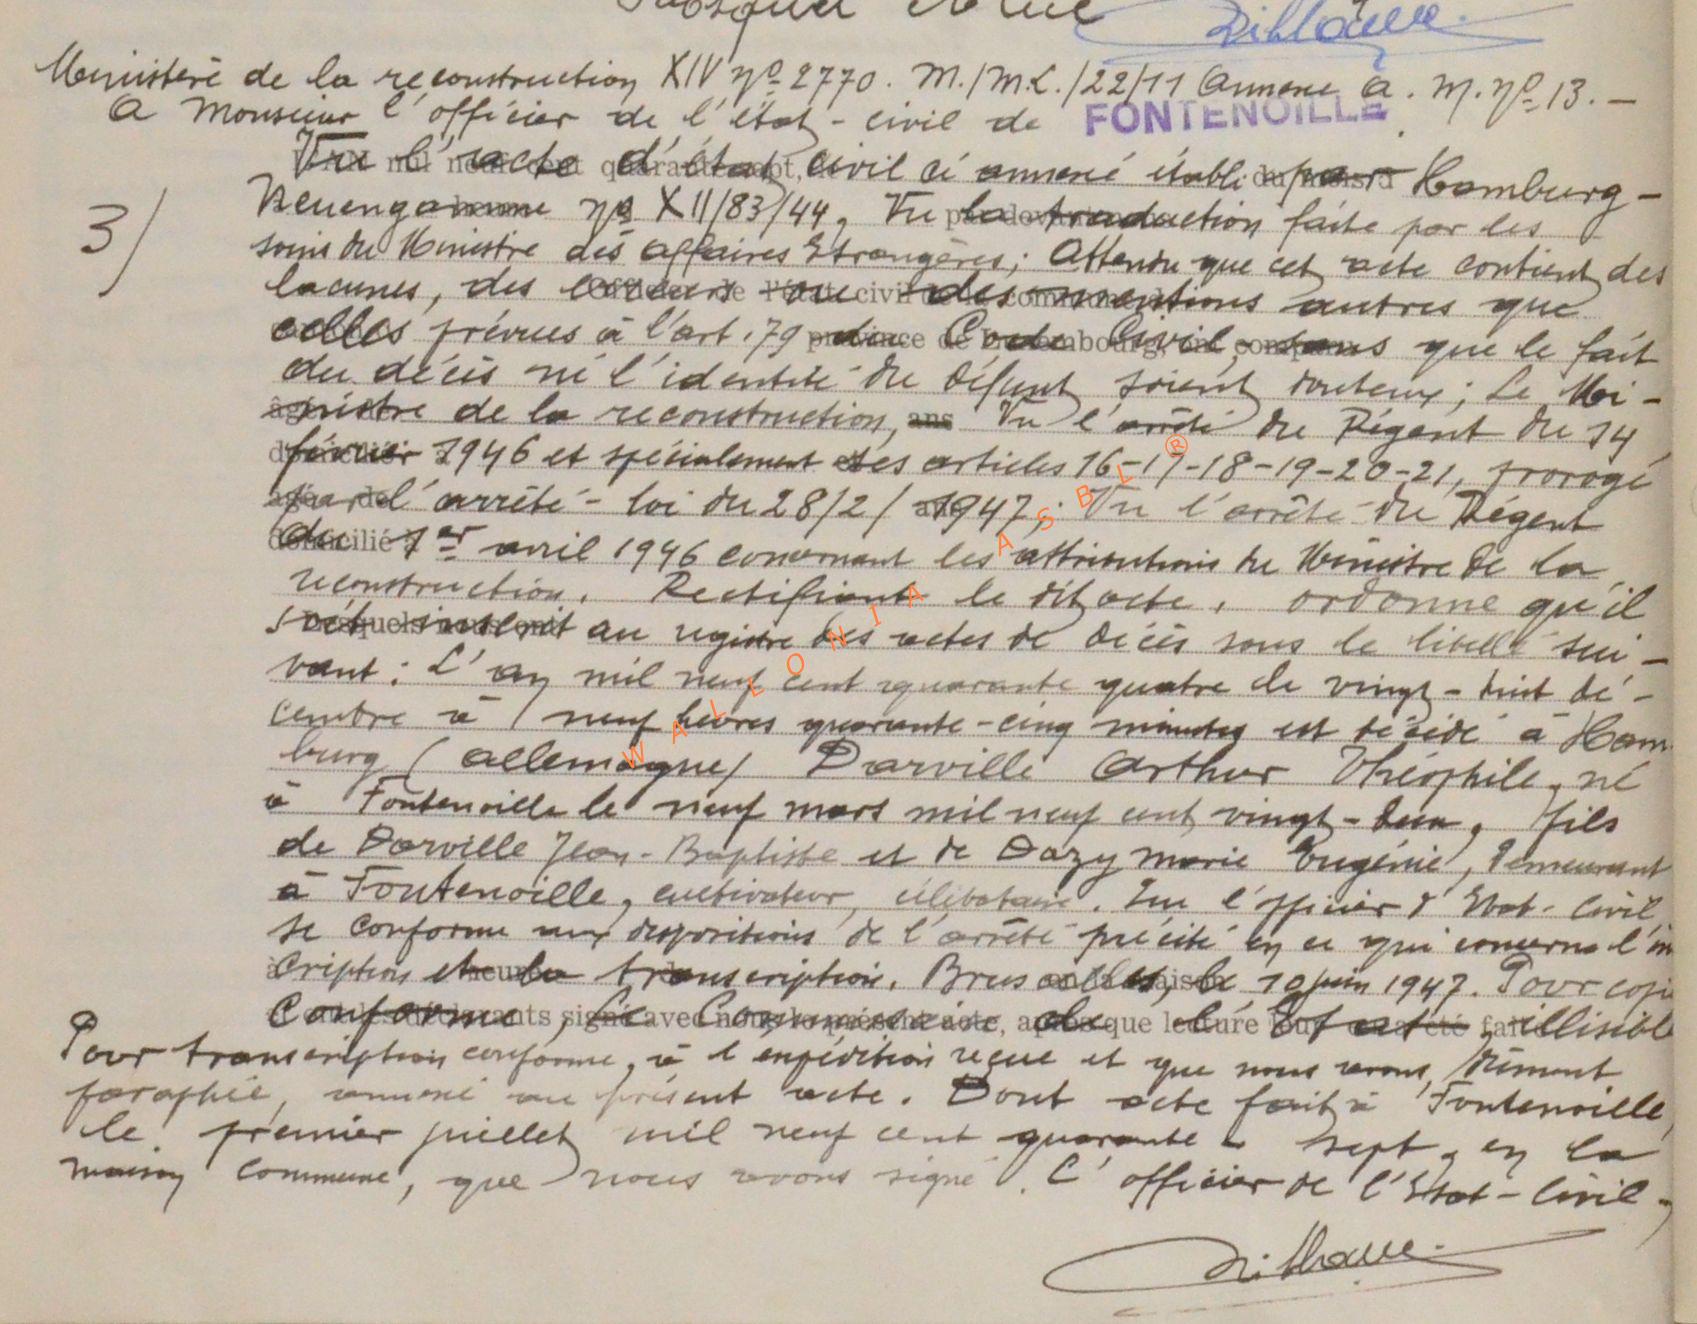 Ministère de la reconstruction XIV nº 2770. M./M.L./22/11 Annexe a. M. nº 13. —
A Monsieur l'officier de l'état-civil de FONTENOILLE.
Vu l'acte d'état civil ci annexé établi par Hamburg-
3/ Neuengamme nº XII/83/44, Vu la traduction faite par les
soins du Ministre des affaires Etrangères; Attendu que cet acte contient des
lacunes, des erreurs ou des mentions autres que
celles prévues à l'art. 79 du Code Civil, sans que le fait
du décès ni l'identité du défunt soient douteux; Le Mi-
nistre de la reconstruction, Vu l'arrêté du Régent du 14
février 1946 et spécialement ses articles 16-17-18-19-20-21, prorogé
par l'arrêté-loi du 28/2/1947; Vu l'arrêté du Régent
du 1er avril 1946 concernant les attributions du Ministre de la
reconstruction. Rectifiant le dit acte, ordonne qu'il
soit inscrit au registre des actes de décès sous le libellé sui-
vant: L'an mil neuf cent quarante quatre le vingt-huit dé-
cembre à neuf heures quarante-cinq minutes est décédé à Ham-
burg (allemagne) Darville Arthur Théophile, né
à Fontenoille le neuf mars mil neuf cent vingt-deux, fils
de Darville Jean-Baptiste et de Dazy Marie Eugénie, demeurant
à Fontenoille, cultivateur, célibataire. Que l'officier d'Etat-Civil
se conforme aux dispositions de l'arrêté précité en ce qui concerne l'ins
cription et la transcription. Bruxelles, le 10 juin 1947. Pour copie
conforme, Le Commissaire de l'Etat, illisible
Pour transcription conforme, à l'expédition reçue et que nous avons, dûment
paraphée, annexé au présent acte. Dont acte fait à Fontenoille,
le premier juillet mil neuf cent quarante-sept, en la
maison commune, que nous avons signé. L'officier de l'Etat-Civil,
WALLONIA ASBL ®